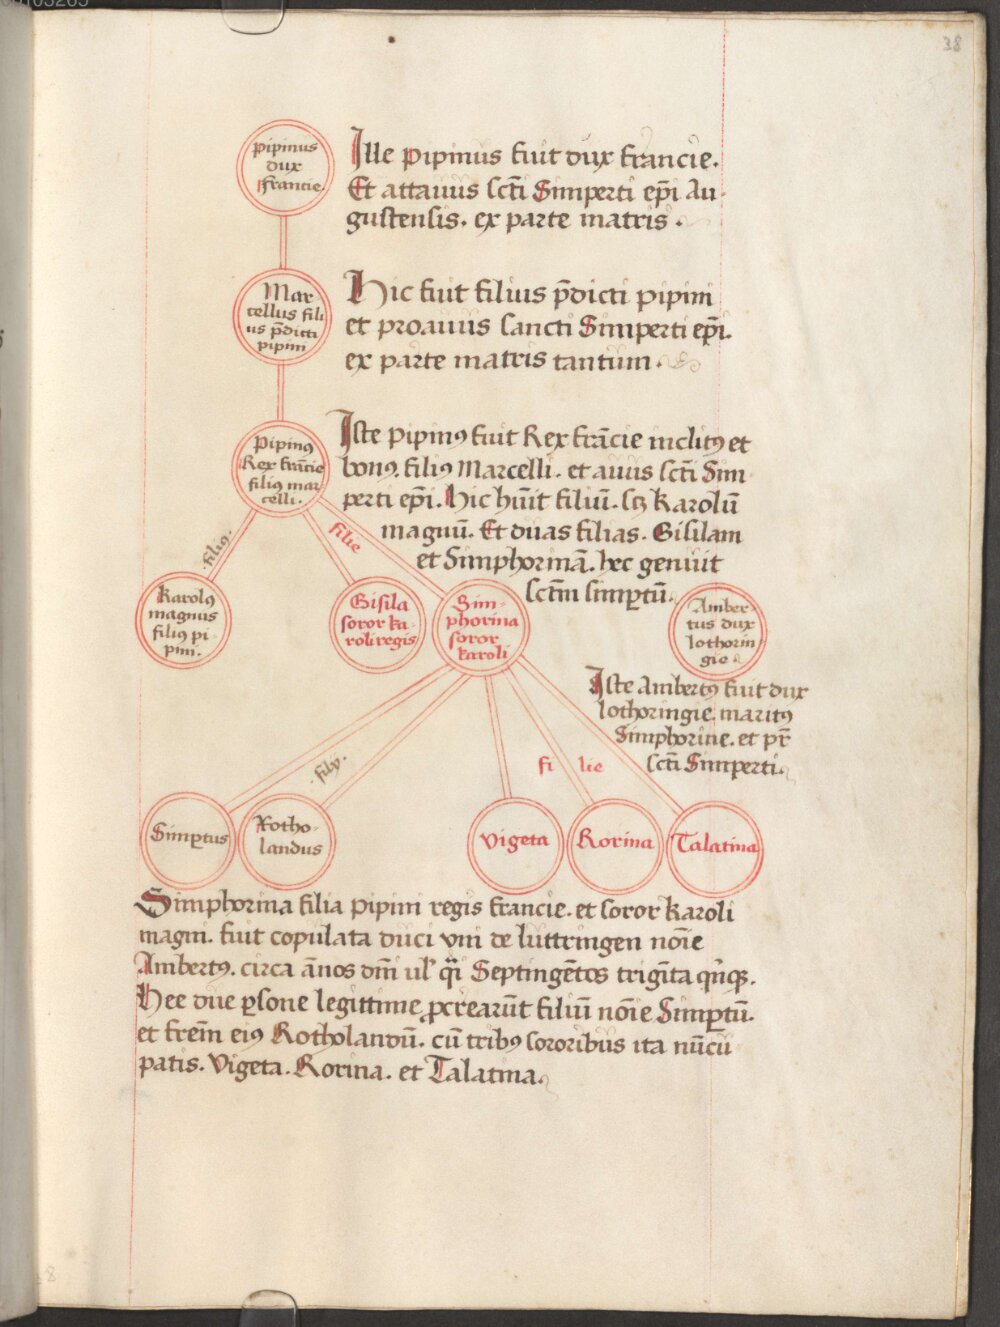 38
pipinus
dux
francie.
Ille pipinus fuit dux francie.
Et attauus sc̄ti Simperti ep̄i Au
gustensis. ex parte matris.
Mar
cellus fili
us p̄dicti
pipini
Hic fuit filius p̄dicti pipini
et proauus sancti Simperti ep̄i.
ex parte matris tantum.
Pipinꝯ
Rex francie
filiꝯ mar
celli.
Iste pipinꝯ fuit Rex frācie inclitꝯ et
bonꝯ. filiꝯ Marcelli. et auus sc̄ti Sim
perti ep̄i. Hic hūit filiū. scꝫ karolū
magnū. Et duas filias. Gisilam
et Simphorinā. hec genuit
sc̄tm simꝑtū.
.filiꝯ.
filie
karolꝯ
magnus
filiꝯ pi
pini.
Gisila
soror ka
roli regis
Sim
phorina
soror
karoli
Amber
tus dux
lothorin
gie
Iste Ambertꝯ fuit dux
lothoringie. maritꝯ
Simphorine. et pr̄
sc̄ti Simperti.
.filij.
fi lie
Simꝑtus
Rotho
landus
Vigeta
Rorina
Talatina
Simphorina filia pipini regis francie. et soror karoli
magni. fuit copulata duci vni de luttringen nōie
Ambertꝯ. circa ānos dn̄i ul' q̄i Septingētos trigīta qn̄qꝫ.
Hee due ꝑsone legittime ꝓcrearūt filiū nōie Simꝑtū.
et frēm eiꝯ Rotholandū. cū tribꝯ sororibus ita nūcu
patis. Vigeta. Rorina. et Talatina.